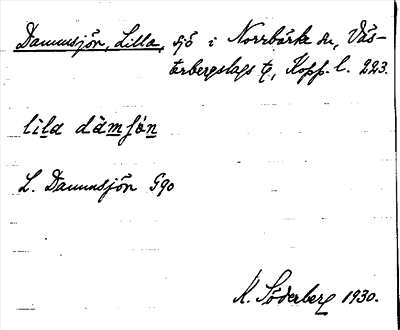 Dammsjön, Lilla, sjö i Norrbärke sn, Väs-
terbergslags tg, Kopp. l. 223.
lila dàmʃön
L. Dammsjön G90
K. Söderberg 1930.